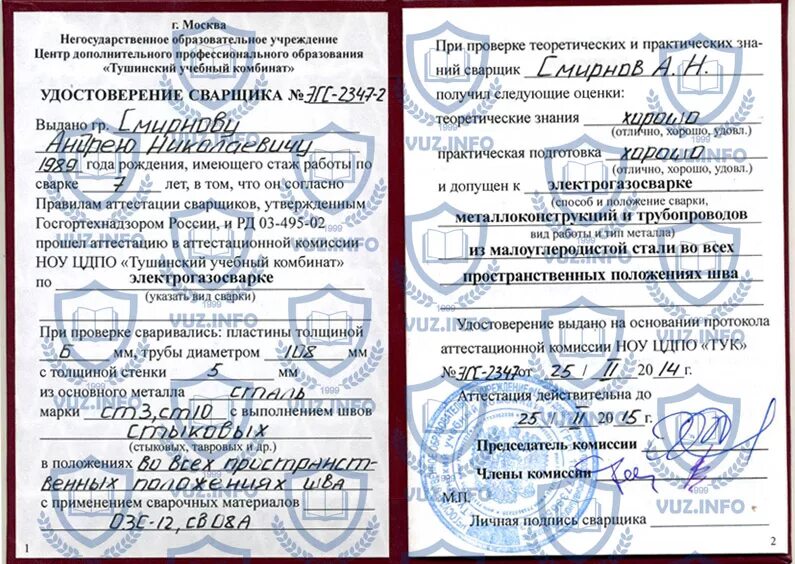 г. Москва
Негосударственное образовательное учреждение
Центр дополнительного профессионального образования
«Тушинский учебный комбинат»
УДОСТОВЕРЕНИЕ СВАРЩИКА № ЭГС-2347-2
Выдано гр. Смирнову
Андрею Николаевичу
1989 года рождения, имеющего стаж работы по
сварке 7 лет, в том, что он согласно
Правилам аттестации сварщиков, утвержденным
Госгортехнадзором России, и РД 03-495-02
прошел аттестацию в аттестационной комиссии
НОУ ЦДПО «Тушинский учебный комбинат»
по электрогазосварке
(указать вид сварки)
При проверке сваривались: пластины толщиной
6 мм, трубы диаметром 108 мм
с толщиной стенки 5 мм
из основного металла сталь
марки ст3, ст10 с выполнением швов
стыковых
(стыковых, тавровых и др.)
в положениях во всех пространст-
венных положениях шва
с применением сварочных материалов
ОЗС-12, СВ08А
1
При проверке теоретических и практических зна-
ний сварщик Смирнов А.Н.
получил следующие оценки:
теоретические знания хорошо
(отлично, хорошо, удовл.)
практическая подготовка хорошо
(отлично, хорошо, удовл.)
и допущен к электрогазосварке
(способ и положение сварки,
металлоконструкций и трубопроводов
вид работы и тип металла)
из малоуглеродистой стали во всех
пространственных положениях шва
Удостоверение выдано на основании протокола
аттестационной комиссии НОУ ЦДПО «ТУК»
№ ЭГС-2347 от 25 / II 2014 г.
Аттестация действительна до
25 / II 2015 г.
Председатель комиссии
Члены комиссии
М.П.
Личная подпись сварщика
2
VUZ.INFO
1999